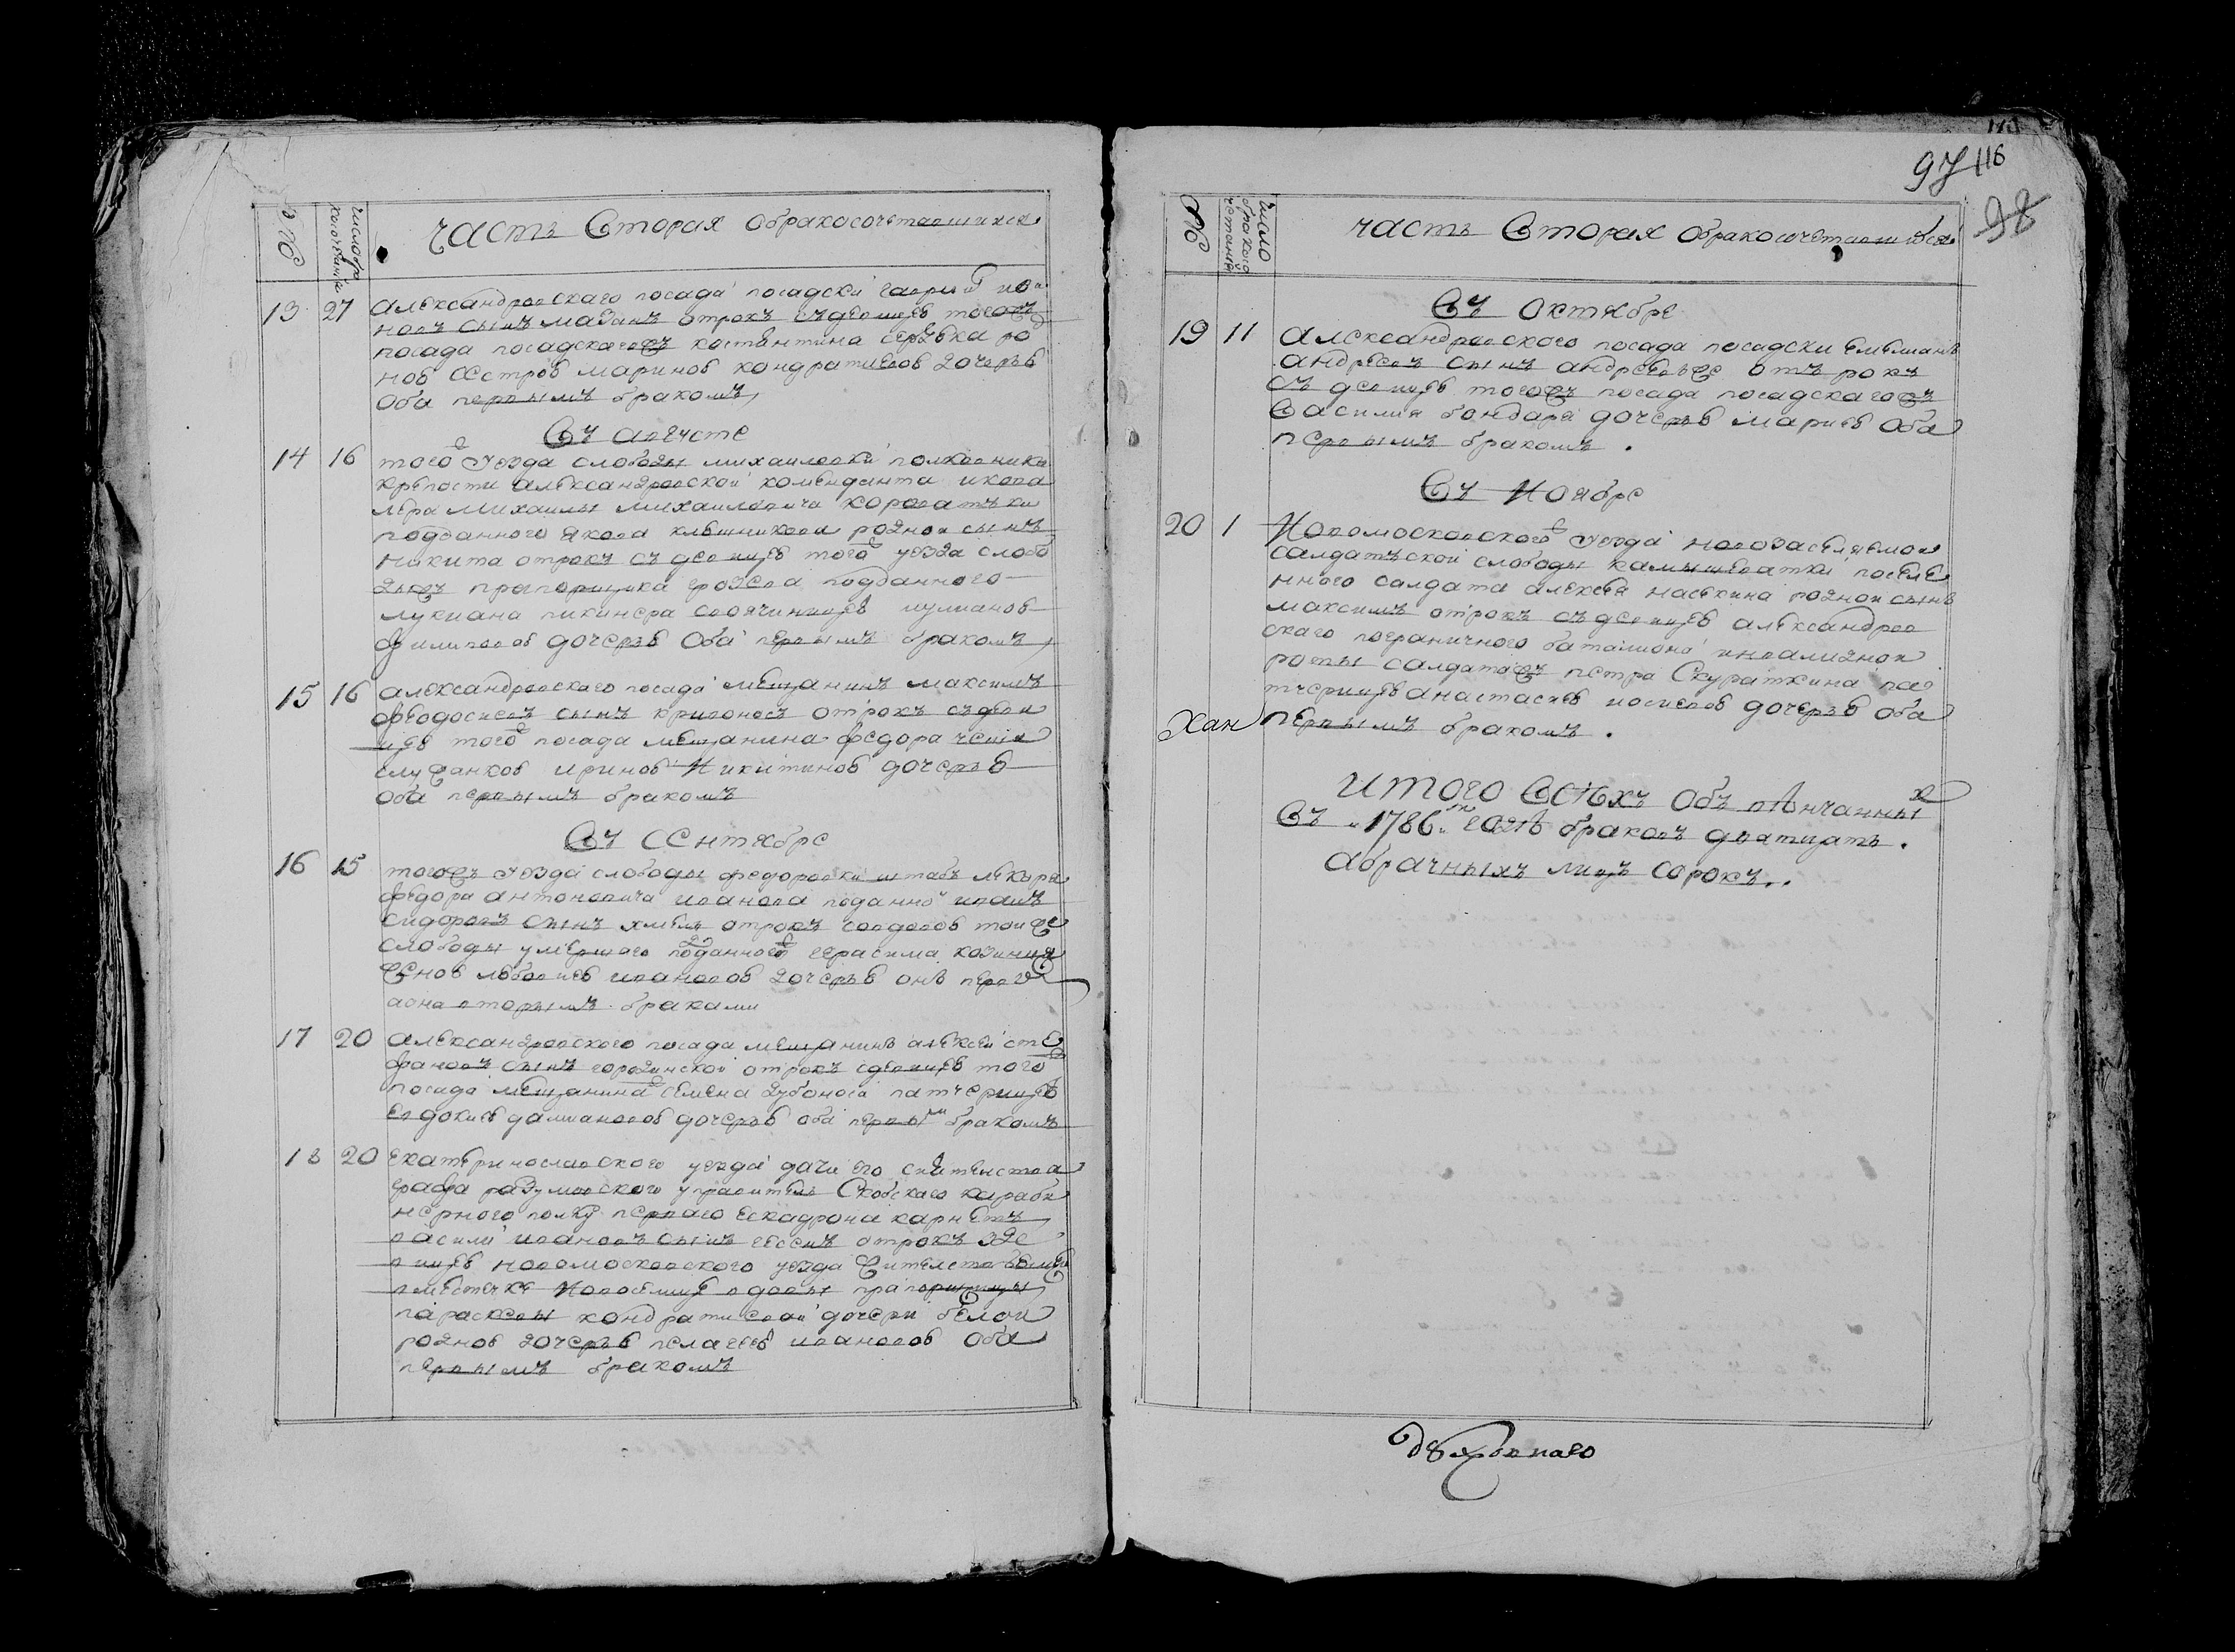 97 116
98
№
число бракосочетания
часть Вторая обракосочетавшихся
13 27 александровскаго посада посадски гаврило ива
новъ сынъ мазанъ отрокъ съдевицею тогожъ
посада посадскагожъ костантина сержка ро
ною сестрою мариною кондратиевою дочерью
оба первымъ бракомъ
Въ августе
14 16 того уезда слободы михаиловки полковника
крепости александровской коменданта и кава
лера михаилы михаиловича
подданного якова клешникова родной сынъ
никита отрокъ съ девицею того уезда слобо
подданного
лукиана пикинера иулианою
филиповою дочерью оба первымъ бракомъ
15 16 александровскаго посада мещанинъ максимъ
феодосиевъ сынъ кривоносъ отрокъ съдеви
цею того посада мещанина федора
ириною никитиною дочерью
оба первымъ бракомъ
Въ Сентябре
16 15 тогожъ уезда слободы федоровки штабъ лекаря
федора антоновича иванова поданной иванъ
сидоровъ сынъ хмель отрокъ совдовою тоиже
слободы умершаго поданного герасима
женою любовию ивановою дочерью онъ первы
аона вторымъ браками
17 20 александровского посада мещанинъ алексей сте
фановъ сынъ отрокъ сдевицею того
посада мещанина семена дубоноса патчерицею
евдокиею дамиановою дочерью оба первы бракомъ
18 20 екатеринославского уезда дачи его сиятелства
графа разумовского управитель Скобскаго караби
нерного полку перваго ескадрона карнетъ
васили ивановъ сынъ отрокъ зде
вицею новомосковского уезда жителствующе
вместечке вдовы прапорщицы
параскевы кондратиевой дочери белой
родною дочерью пелагеею ивановою оба
первымъ бракомъ
№
число бракосочетания
часть Вторая обракосочетавшихся
Въ Октябре
19 11 александровского посада посадски емелианъ
андреевъ сынъ андреевъ отърокъ
съ девицею тогожъ посада посадскагожъ
Василия бондаря дочерью мариею оба
первымъ бракомъ.
Въ Ноябре
20 1 Новомосковского уезда новозаселяемои
салдатъской слободы камышеватки поселе
нного салдата алексея насекина родной сынъ
максимъ отрокъ съдевицею александров
скаго пограничного баталиона инвалидной
роты салдатажъ петра Скураткина па
тчерицею анастасиею иосиевою дочерью оба
первымъ бракомъ.
Хан
итого Всѣхъ объ вѣнчанных
Въ 1786м годѣ браковъ дватцать.
абрачныхъ лицъ сорокъ..
духовнаго